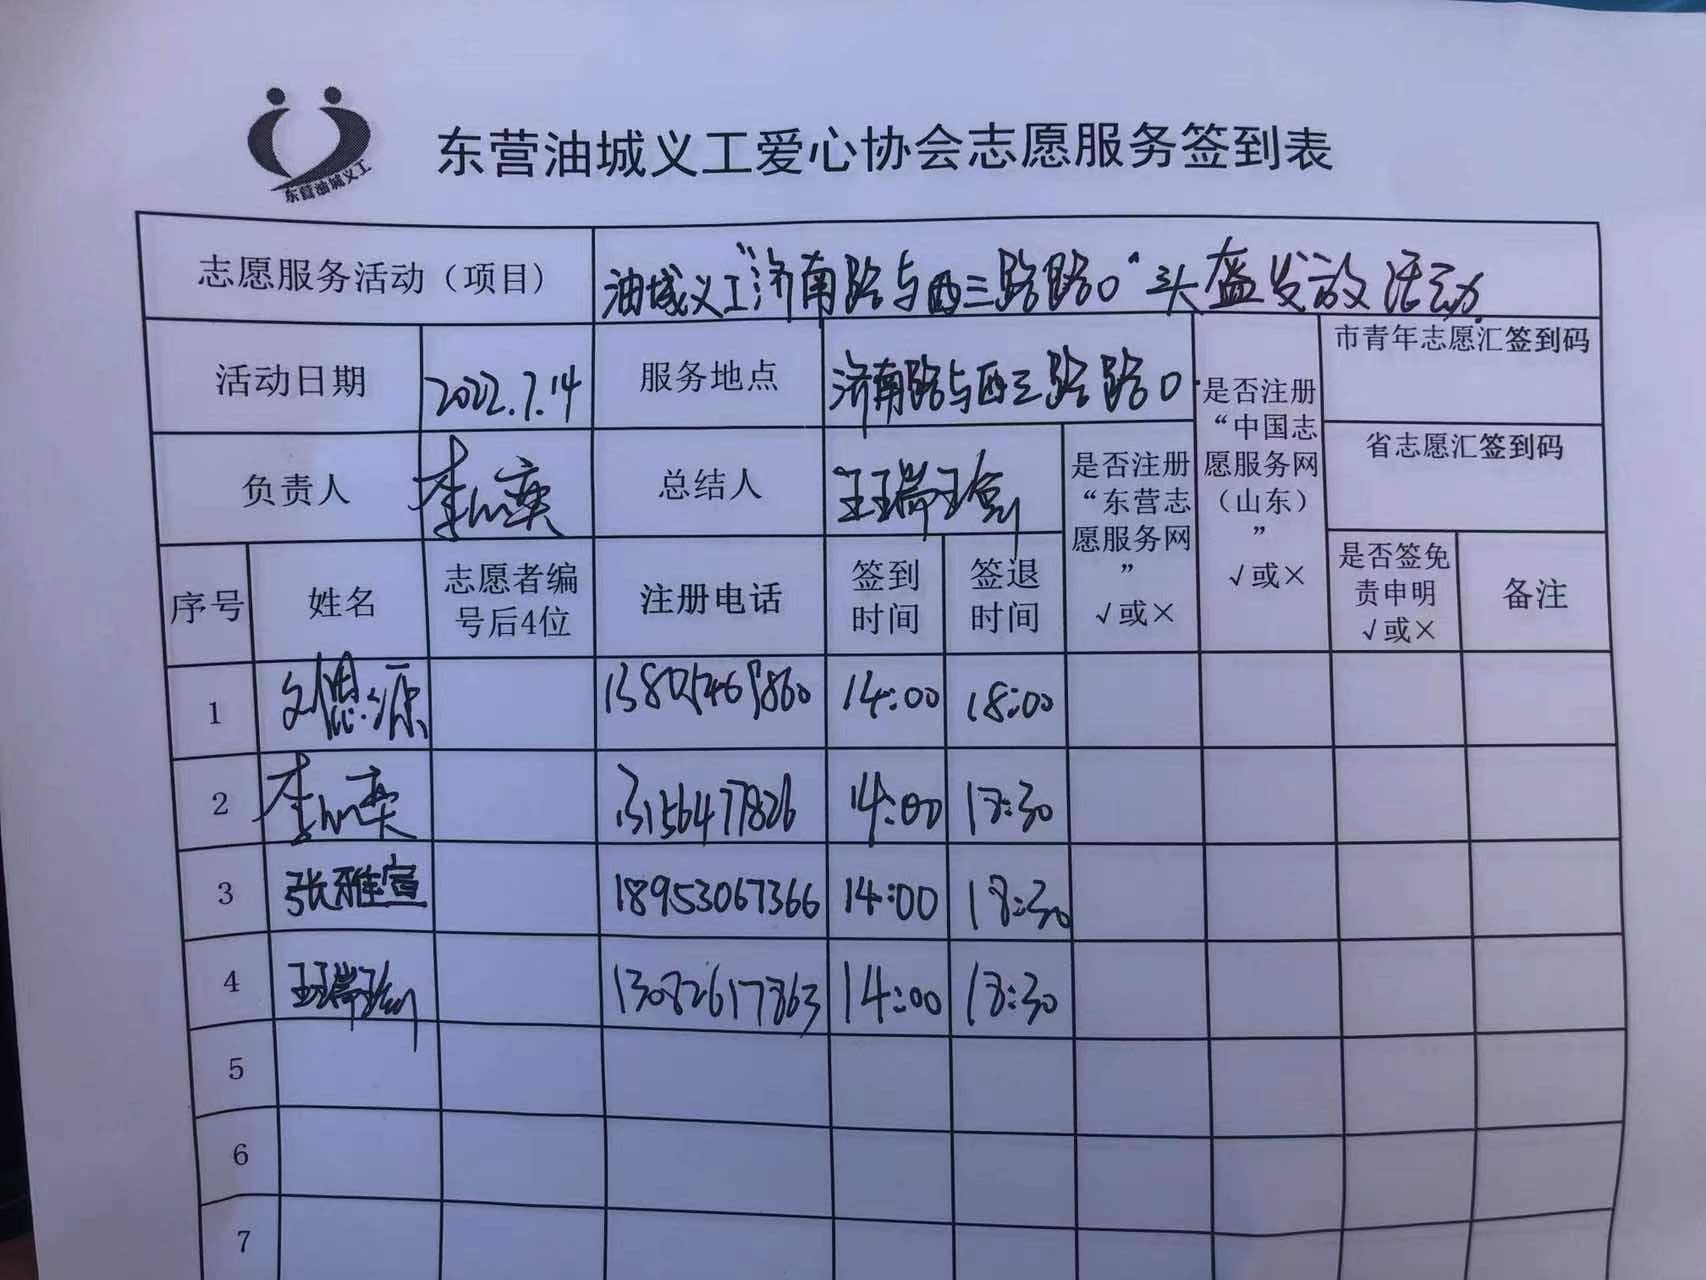 东营油城义工
东营油城义工爱心协会志愿服务签到表
志愿服务活动（项目） 油城义工"济南路与西三路路口"头盔发放活动
活动日期 2022.7.14 服务地点 济南路与西三路路口
是否注册“中国志愿服务网（山东）” √或×
市青年志愿汇签到码
负责人 总结人 王瑞瑜
是否注册“东营志愿服务网” √或×
省志愿汇签到码
序号 姓名 志愿者编号后4位 注册电话 签到时间 签退时间 是否签免责申明 √或× 备注
1 14:00 18:00
2 14:00 18:30
3 张雅宣 18953067366 14:00 18:30
4 王瑞瑜 13082617863 14:00 18:30
5
6
7